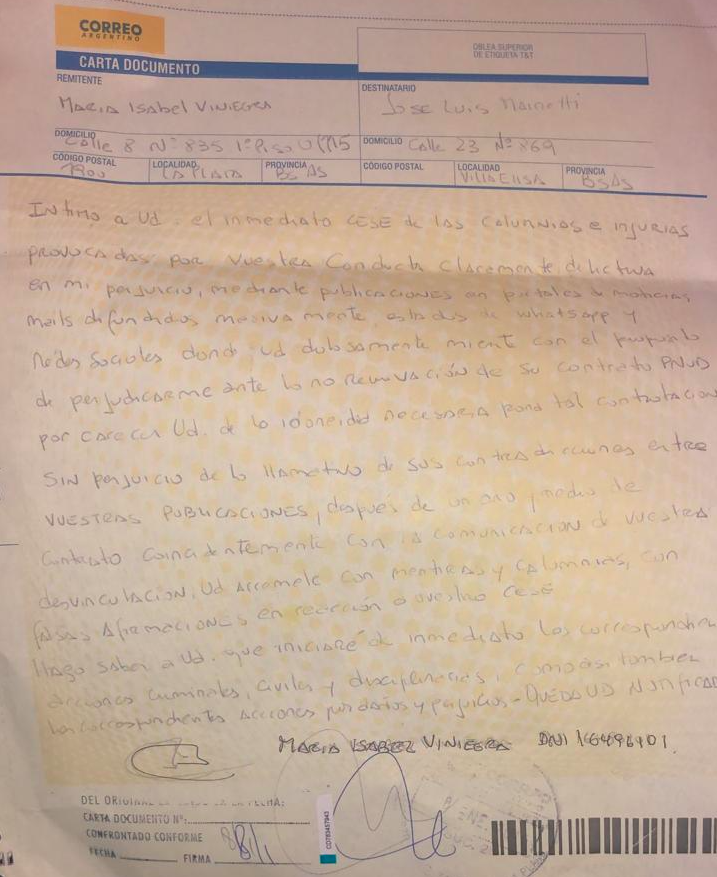 CORREO
ARGENTINO
OBLEA SUPERIOR
DE ETIQUETA T&T
CARTA DOCUMENTO
REMITENTE
DESTINATARIO
MARIA ISABEL VINIEGRA
Jose Luis Mainetti
DOMICILIO
Calle 8 N° 835 1° Piso
DOMICILIO Calle 23 N° 869
CÓDIGO POSTAL LOCALIDAD PROVINCIA CÓDIGO POSTAL LOCALIDAD PROVINCIA
1900 LA PLATA BS AS VILLA ELISA BSAS
INTIMO A Ud. el inmediato CESE de las CALUNNIAS e INJURIAS
PROVOCADAS por VUESTRA CONDUCTA Claramente delictiva
en mi perjuicio, mediante publicaciones en portales de noticias,
mails difundidos masivamente estados de whatsapp y
Redes Sociales donde ud dolosamente miente con el proposito
de perjudicarme ante la no Renovación de su contrato PNUD
por carecer Ud. de la idoneidad necesaria para tal contratacion
SIN perjuicio de lo llamativo de sus contradicciones entre
VUESTRAS PUBLICACIONES, después de un año y medio de
Contrato Coincidentemente con la comunicacion de vuestra
desvinculacion, Ud Arremete con mentiras y CALUMNIAS, con
falsas Afirmaciones en reacción a vuestro CESE
Hago saber a Ud. que iniciaré de inmediato las correspondientes
acciones criminales, civiles y disciplinarias, como asi tambien
las correspondientes Acciones por daños y perjuicios - QUEDA UD NOTIFICADO
MARIA ISABEL VINIEGRA DNI 16496901.
DEL ORIGINAL FECHA:
CARTA DOCUMENTO N°:
CONFRONTADO CONFORME
FECHA FIRMA